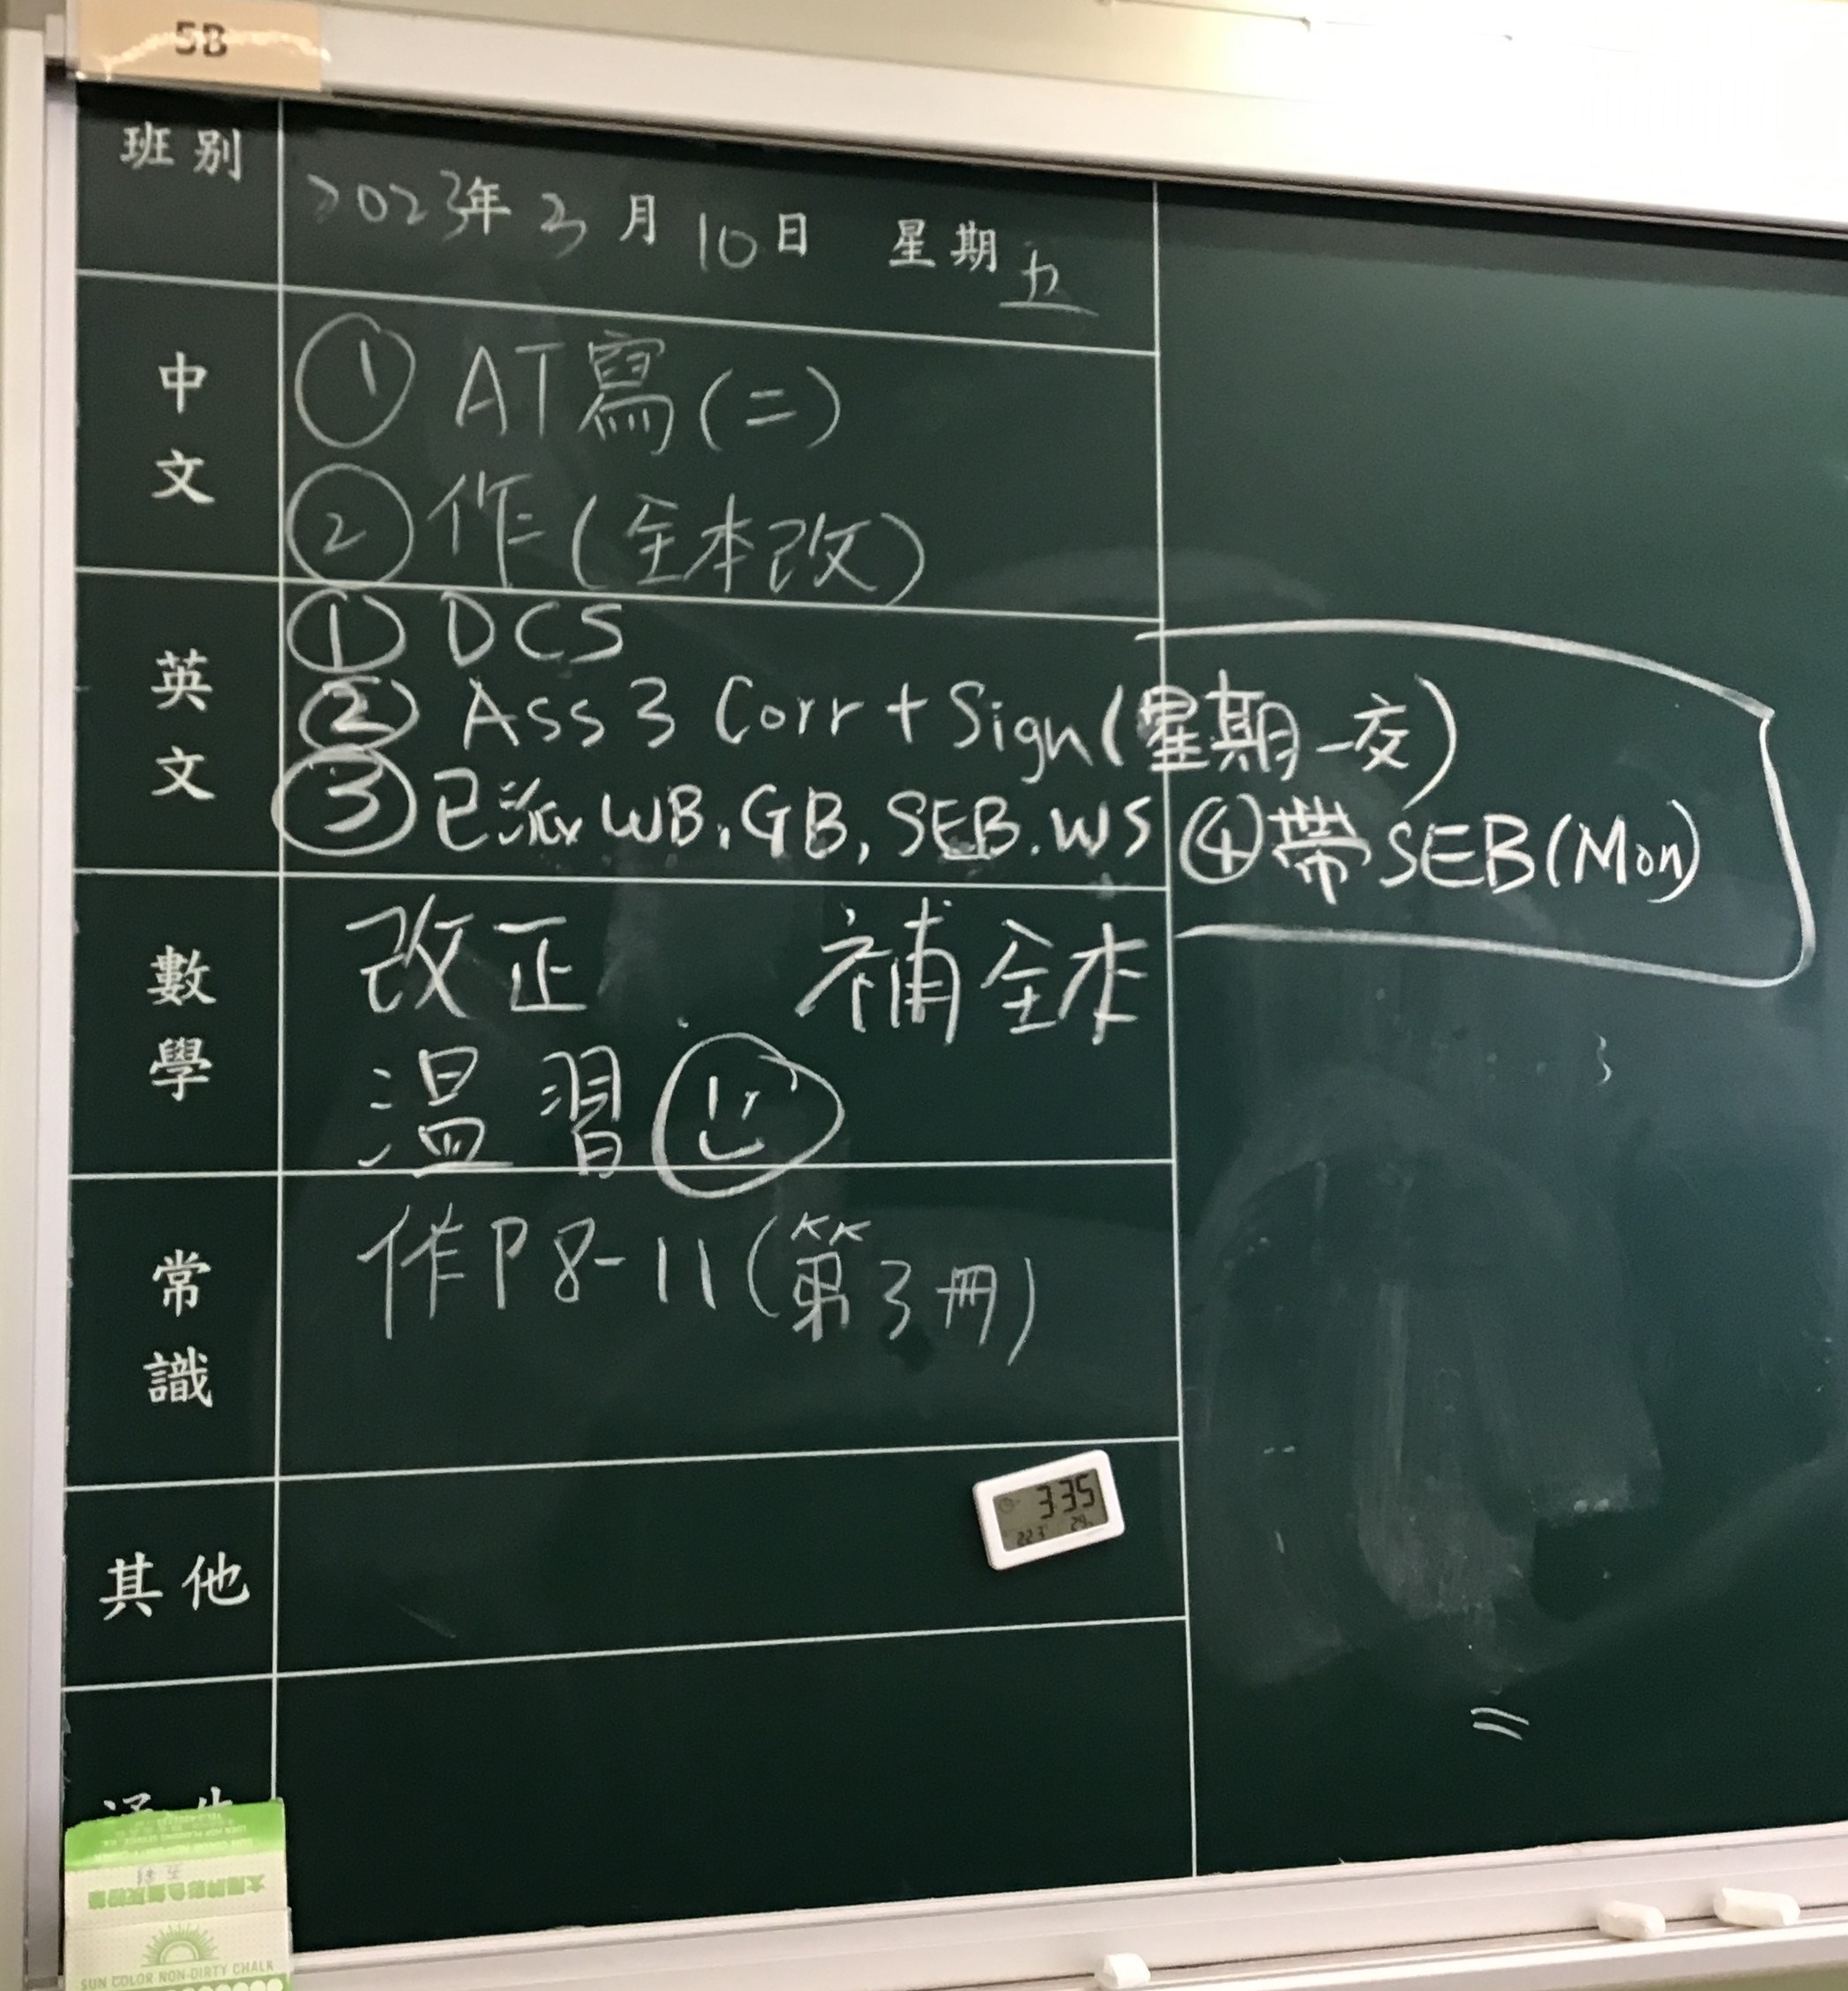 5B
班別
2023年3月10日 星期五
中文
① AT寫(二)
② 作(全本改)
英文
① DCS
② Ass 3 Corr + Sign (星期一交)
③ 已派 WB, GB, SEB, WS ④ 帶 SEB (Mon)
數學
改正 補全本
溫習
常識
作P8-11(第3冊)
其他
3:35
SUN COLOR NON-DIRTY CHALK